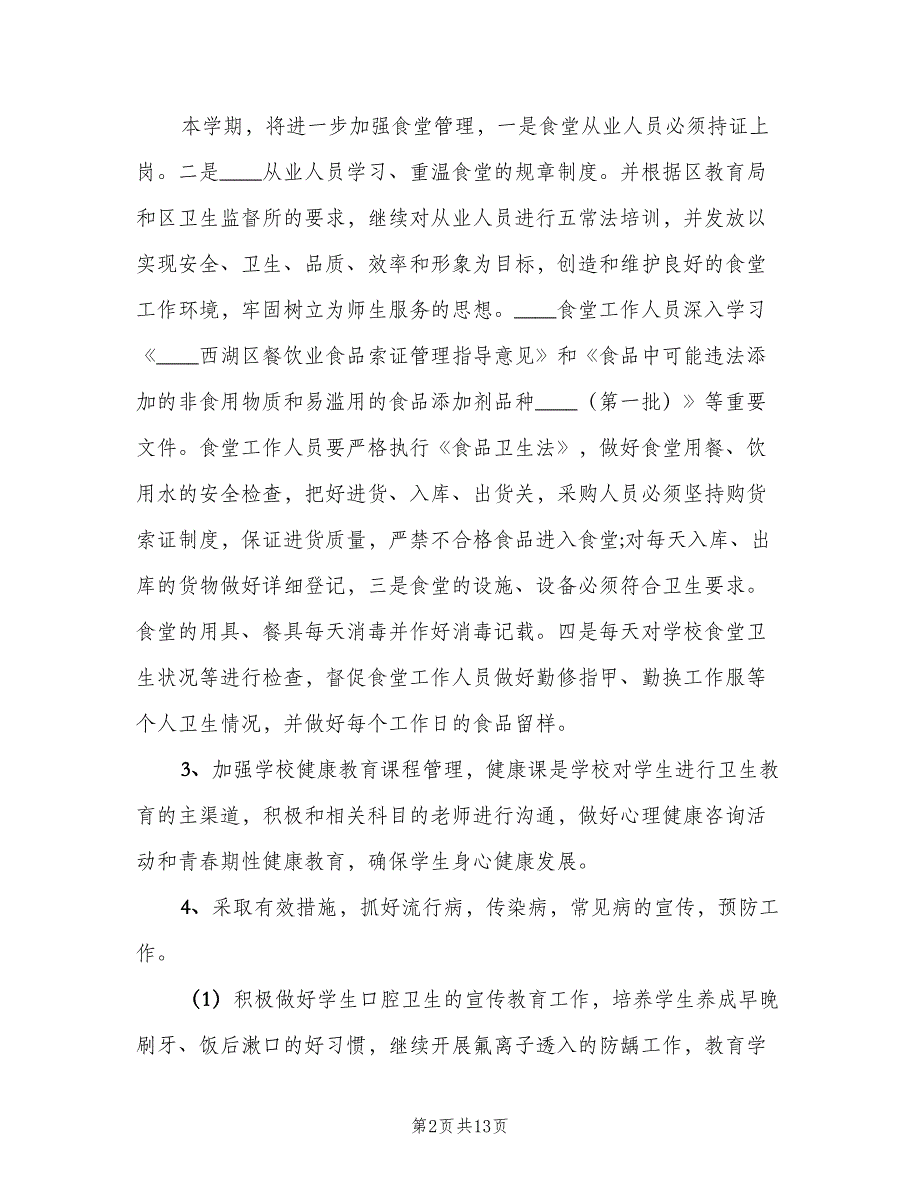 本学期，将进一步加强食堂管理，一是食堂从业人员必须持证上
岗。二是____从业人员学习、重温食堂的规章制度。并根据区教育局
和区卫生监督所的要求，继续对从业人员进行五常法培训，并发放以
实现安全、卫生、品质、效率和形象为目标，创造和维护良好的食堂
工作环境，牢固树立为师生服务的思想。____食堂工作人员深入学习
《____西湖区餐饮业食品索证管理指导意见》和《食品中可能违法添
加的非食用物质和易滥用的食品添加剂品种____（第一批）》等重要
文件。食堂工作人员要严格执行《食品卫生法》，做好食堂用餐、饮
用水的安全检查，把好进货、入库、出货关，采购人员必须坚持购货
索证制度，保证进货质量，严禁不合格食品进入食堂;对每天入库、出
库的货物做好详细登记，三是食堂的设施、设备必须符合卫生要求。
食堂的用具、餐具每天消毒并作好消毒记载。四是每天对学校食堂卫
生状况等进行检查，督促食堂工作人员做好勤修指甲、勤换工作服等
个人卫生情况，并做好每个工作日的食品留样。
3、加强学校健康教育课程管理，健康课是学校对学生进行卫生教
育的主渠道，积极和相关科目的老师进行沟通，做好心理健康咨询活
动和青春期性健康教育，确保学生身心健康发展。
4、采取有效措施，抓好流行病，传染病，常见病的宣传，预防工
作。
（1）积极做好学生口腔卫生的宣传教育工作，培养学生养成早晚
刷牙、饭后漱口的好习惯，继续开展氟离子透入的防龋工作，教育学
第2页共13页